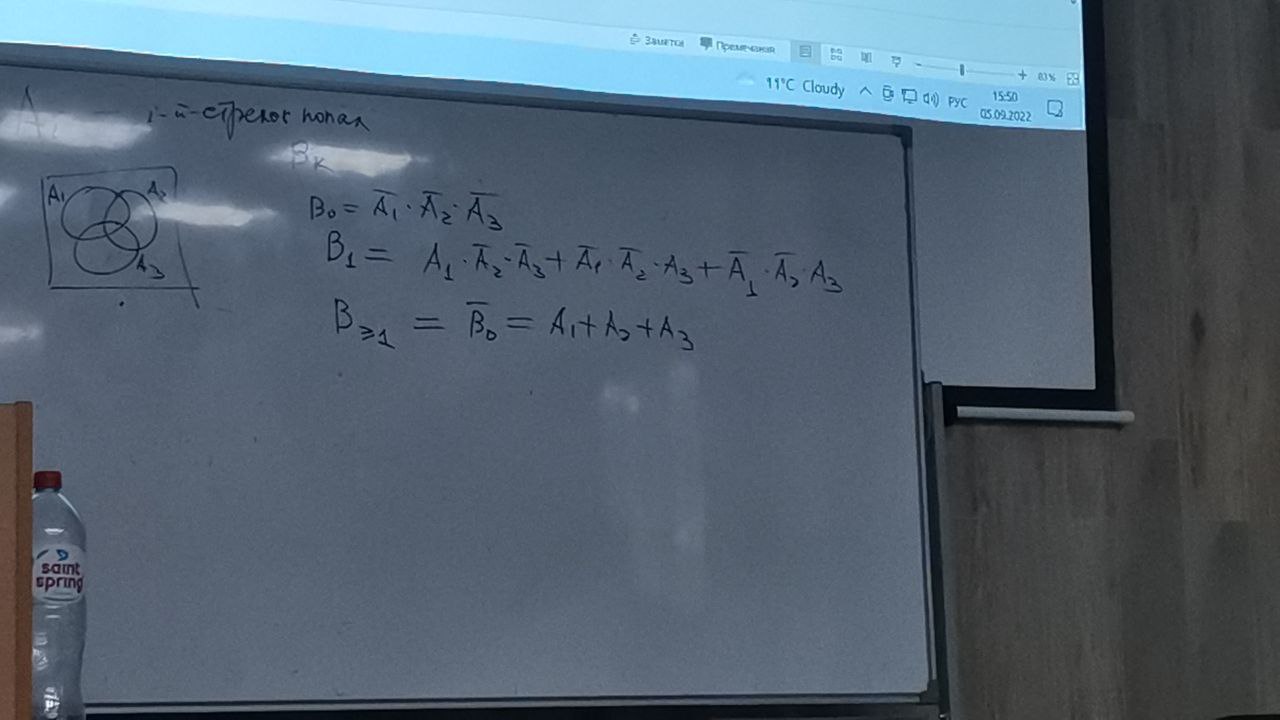 Заметки Примечания 83%
11°C Cloudy РУС 15:50
05.09.2022
Aᵢ — i-й-стрелок попал
Bₖ
A₁ A₂
A₃
B₀ = A̅₁ · A̅₂ · A̅₃
B₁ = A₁ · A̅₂ · A̅₃ + A̅₁ · A̅₂ · A₃ + A̅₁ · A̅₂ A₃
B≥₁ = B̅₀ = A₁ + A₂ + A₃
saint
spring